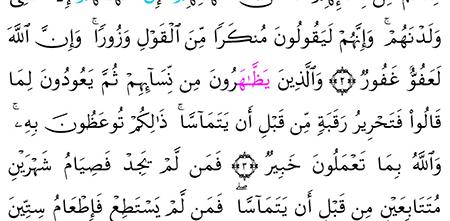 وَلَدْنَهُمْ ۚ وَإِنَّهُمْ لَيَقُولُونَ مُنكَرًا مِّنَ ٱلْقَوْلِ وَزُورًا ۚ وَإِنَّ ٱللَّهَ
لَعَفُوٌّ غَفُورٌ ٢ وَٱلَّذِينَ يُظَـٰهِرُونَ مِن نِّسَآئِهِمْ ثُمَّ يَعُودُونَ لِمَا
قَالُوا۟ فَتَحْرِيرُ رَقَبَةٍ مِّن قَبْلِ أَن يَتَمَآسَّا ۚ ذَٰلِكُمْ تُوعَظُونَ بِهِۦ ۚ
وَٱللَّهُ بِمَا تَعْمَلُونَ خَبِيرٌ ٣ فَمَن لَّمْ يَجِدْ فَصِيَامُ شَهْرَيْنِ
مُتَتَابِعَيْنِ مِن قَبْلِ أَن يَتَمَآسَّا ۖ فَمَن لَّمْ يَسْتَطِعْ فَإِطْعَامُ سِتِّينَ